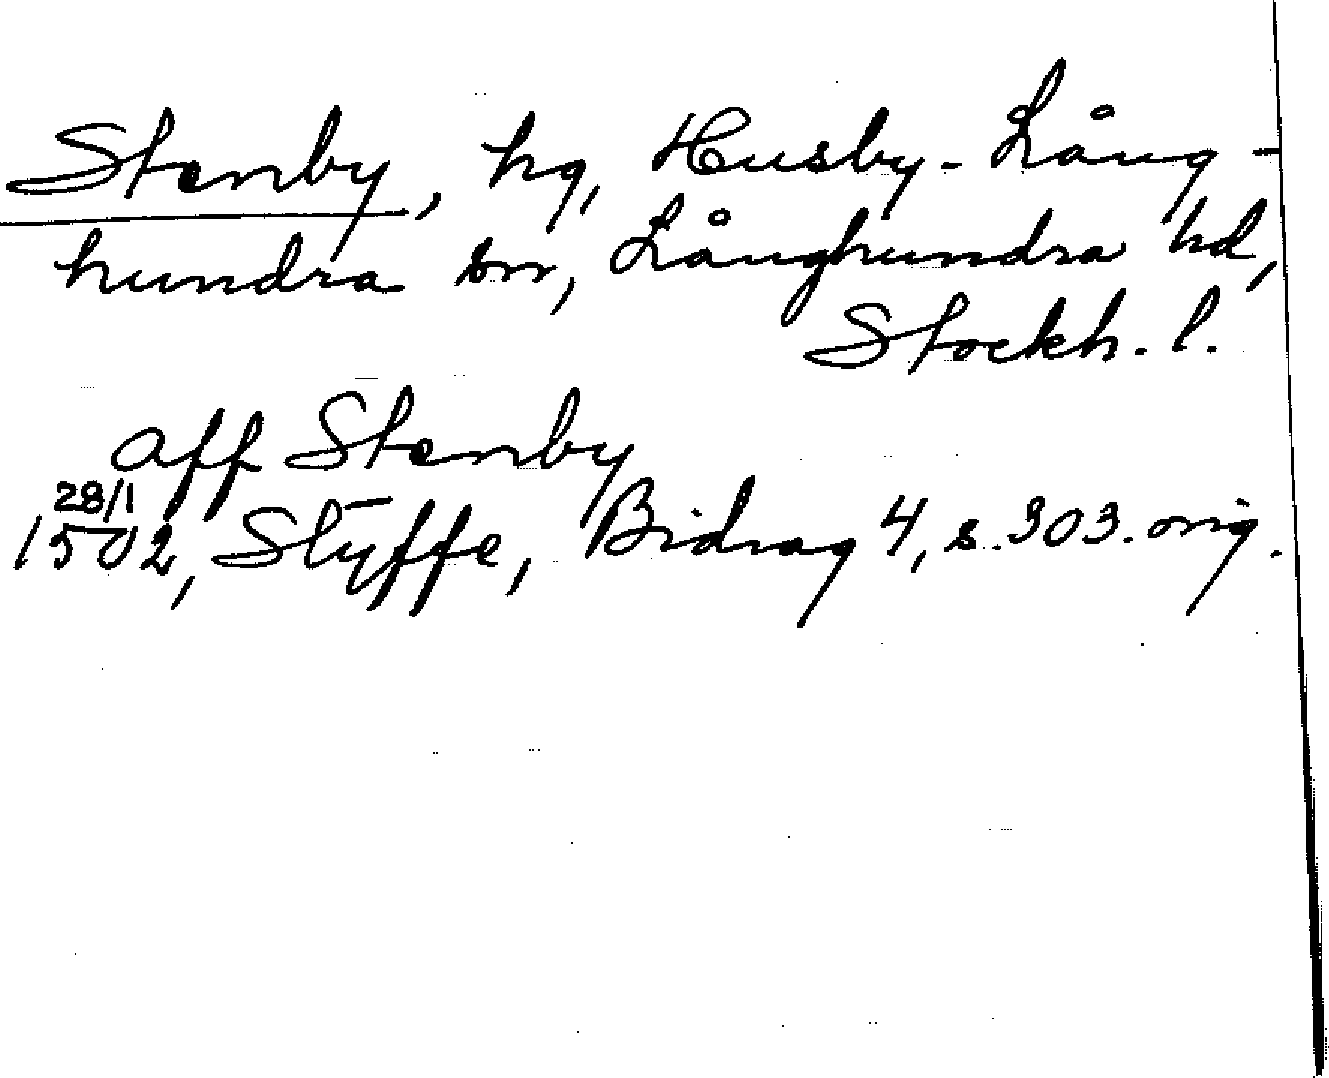 Stenby, hg, Husby-Lång-
hundra sn, Långhundra hd,
Stockh. l.
aff Stenby
28/1
1502, Styffe, Bidrag 4, s. 303. orig.